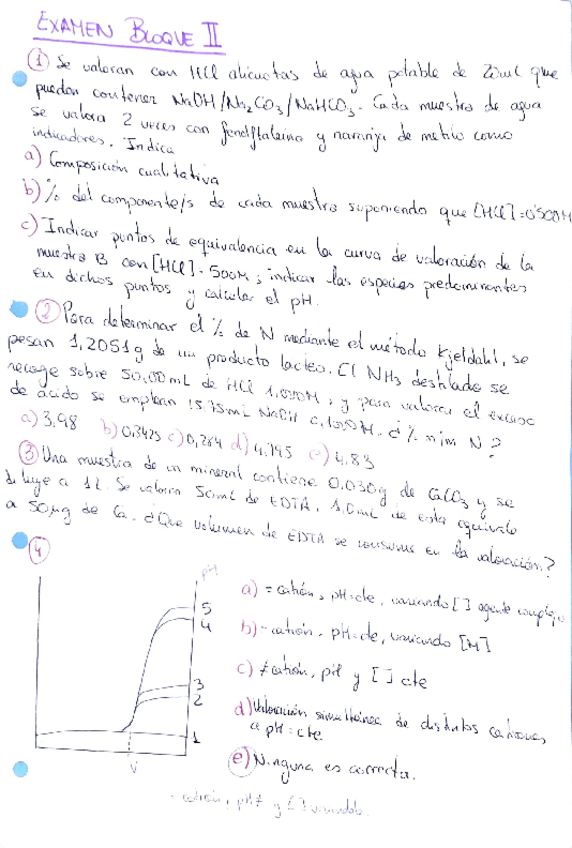 EXAMEN BLOQUE II
① Se valoran con HCl alicuotas de agua potable de 20mL que
pueden contener NaOH/Na₂CO₃/NaHCO₃. Cada muestra de agua
se valora 2 veces con fenolftaleina y naranja de metilo como
indicadores. Indica
a) Composición cualitativa
b) % del componente/s de cada muestra suponiendo que [HCl]=0'500M
c) Indicar puntos de equivalencia en la curva de valoración de la
muestra B con [HCl]=500M; indicar las especies predominantes
en dichos puntos y calcular el pH.
② Para determinar el % de N mediante el método Kjeldahl, se
pesan 1,2051g de un producto lacteo. El NH₃ destilado se
recoge sobre 50,00mL de HCl M, y para valorar el exceso
de ácido se emplean 15.75mL NaOH M. ¿% m/m N?
a) 3,98 b) 0,3425 c) 0,284 d) 4,795 e) 4,83
③ Una muestra de un mineral contiene 0,030g de CaCO₃ y se
diluye a 1L. Se valoran 50mL de EDTA. 1,0mL de esta equivale
a 50µg de Ca. ¿Que volumen de EDTA se consume en la valoración?
④
pM
5
4
3
2
1
V
a) = catión, pH=cte, variando [ ] agente
b) = catión, pH=cte, variando [M]
c) ≠ catión, pH y [ ] cte
d) Valoración simultánea de distintos cationes
a pH=cte
e) Ninguna es correcta.
= catión, pH≠ y [ ] variable.